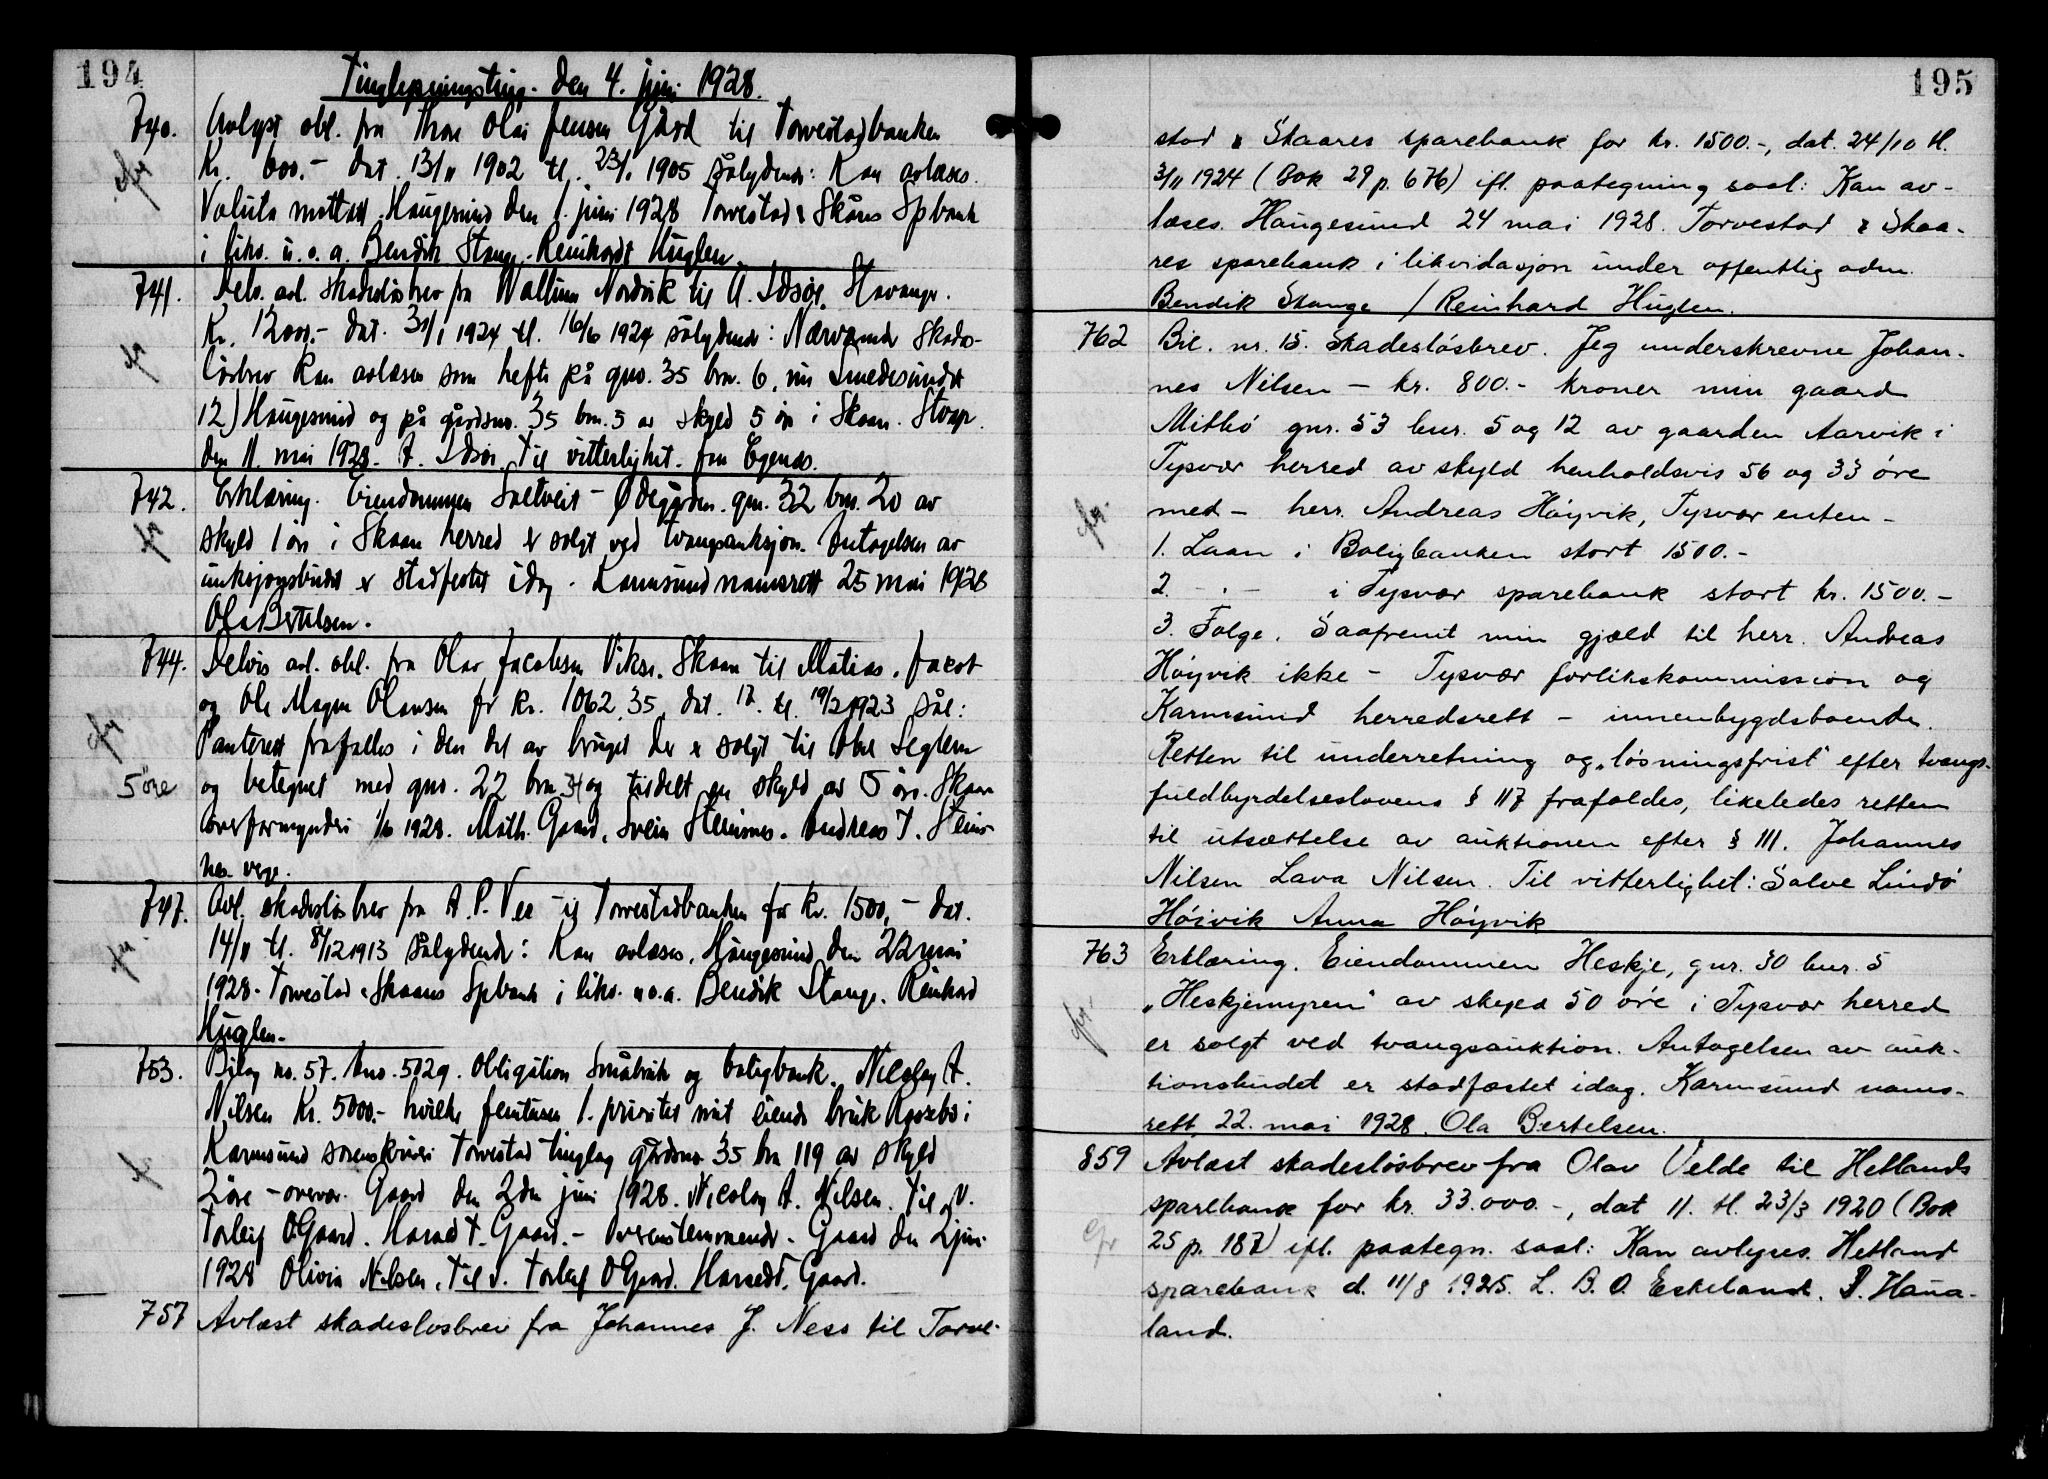 194
Tinglysningsting den 4. juni 1928.
740. Avlyst obl. fra Thore Olai Jensen Gård til Torvestadbanken
Kr. 600.- dat. 13/11 1902 tl. 23/1 1905 sålydende: Kan avlæses.
Valuta mottatt. Haugesund den 1. juni 1928 Torvestad & Skåres Spbank
i likv. u. o. a. Bendik Stange. Reinhardt Huglen.
741. Delv. avl. skadesløsbrev fra Nordvik til A. Idsøe, Stavanger.
Kr. 12000.- dat. 31/1 1924 tl. 16/6 1924 sålydende: Nærværende skades-
løsbrev kan avlæses som hefte på gno. 35 brn. 6, nu Smedesundet
12) Haugesund og på gårdsnr. 35 brn. 5 av skyld 5 øre i Skaare. Stvgr.
den 11. mai 1928. A. Idsøe. Til vitterlighet.
742. Erklæring. Eiendommen Saltveit - Ødegården. gnr. 32 brn. 20 av
skyld 1 øre i Skaare herred er solgt ved tvangsauksjon. Antagelsen av
auksjonsbudet er stadfestet idag. Karmsund namsrett 25 mai 1928
Ola Bertelsen.
744. Delvis avl. obl. fra Olav Jacobsen Vikse, Skaare til Matias, Jacob
og Ole Magne Olausen for kr. 1062,35, dat. 12. tl. 19/2 1923 sål:
Panterett frafalles i den del av bruget der er solgt til
og betegnet med gno. 22 brn. 34 og tildelt en skyld av 5 øre. Skaare
5 øre
overformynderi 1/6 1928. Math. Gaard, Svein Steinsnes. Andreas J. Steins-
nes. verge.
747. Avl. skadesløsbrev fra A. P. Vee til Torvestadbanken for kr. 1500,- dat.
14/11 tl. 8/12 1913 sålydende: Kan avlæses. Haugesund den 22 mai
1928. Torvestad & Skaares Spbank i likv. u.o.a. Bendik Stange. Reinhard
Huglen.
753. Bilag no. 57. 5029. Obligation Småbruk og boligbank. Nicolay A.
Nilsen Kr. 5000.- hvilke femtusen 1. prioritet mit eiende bruk i
Karmsund sorenskriveri Torvestad tinglag gårdsnr. 35 brn 119 av skyld
2 øre - Gaard den 2den juni 1928. Nicolay A. Nilsen. Til v.
Torleif O Gaard. Harald T. Gaard. - Overenstemmende. Gaard den 2 juni
1928 Olivia Nilsen. Til v. Torleif O Gaard. Harald T. Gaard.
757 Avlæst skadesløsbrev fra Johannes J. Ness til Torve-
195
stad & Skaares sparebank for kr. 1500.-, dat. 24/10 tl.
3/11 1924 (Bok 29 p. 676) ifl. paategning saal: Kan av-
læses. Haugesund 24 mai 1928. Torvestad & Skaa-
res sparebank i likvidasjon under offentlig adm.
Bendik Stange / Reinhard Huglen.
762 Bil. nr. 15. Skadesløsbrev. Jeg underskrevne Johan-
nes Nilsen - kr. 800.- kroner min gaard
Mitbø gnr. 53 bnr. 5 og 12 av gaarden Aarvik i
Tysvær herred av skyld henholdsvis 56 og 33 øre
med - herr. Andreas Høyvik, Tysvær enten -
1. Laan i Boligbanken stort 1500.-
2. - " - i Tysvær sparebank stort kr. 1500.-
3. Følge. Saafremt min gjæld til herr. Andreas
Høyvik ikke - Tysvær forlikskommission og
Karmsund herredsrett - innenbygdsboende.
Retten til underretning og „løsningsfrist" efter tvangs-
fuldbyrdelseslovens § 117 frafaldes, likeledes retten
til utsættelse av auktionen efter § 111. Johannes
Nilsen Lava Nilsen. Til vitterlighet: Salve Lindø
Høivik Anna Høyvik
763 Erklæring. Eiendommen Heskje, gnr. 30 bnr. 5
„Heskjemyren" av skyld 50 øre i Tysvær herred
er solgt ved tvangsauktion. Antagelsen av auk-
tionsbudet er stadfæstet idag. Karmsund nams-
rett 22. mai 1928. Ola Bertelsen.
859 Avlæst skadesløsbrev fra Olav Velde til Hetlands
sparebank for kr. 33.000.-, dat 11. tl. 23/3 1920 (Bok
25 p. 187) ifl. paategn. saal: Kan avlyses. Hetland
sparebank d. 11/8 1925. L. B. O. Eskeland. P. Haua-
land.